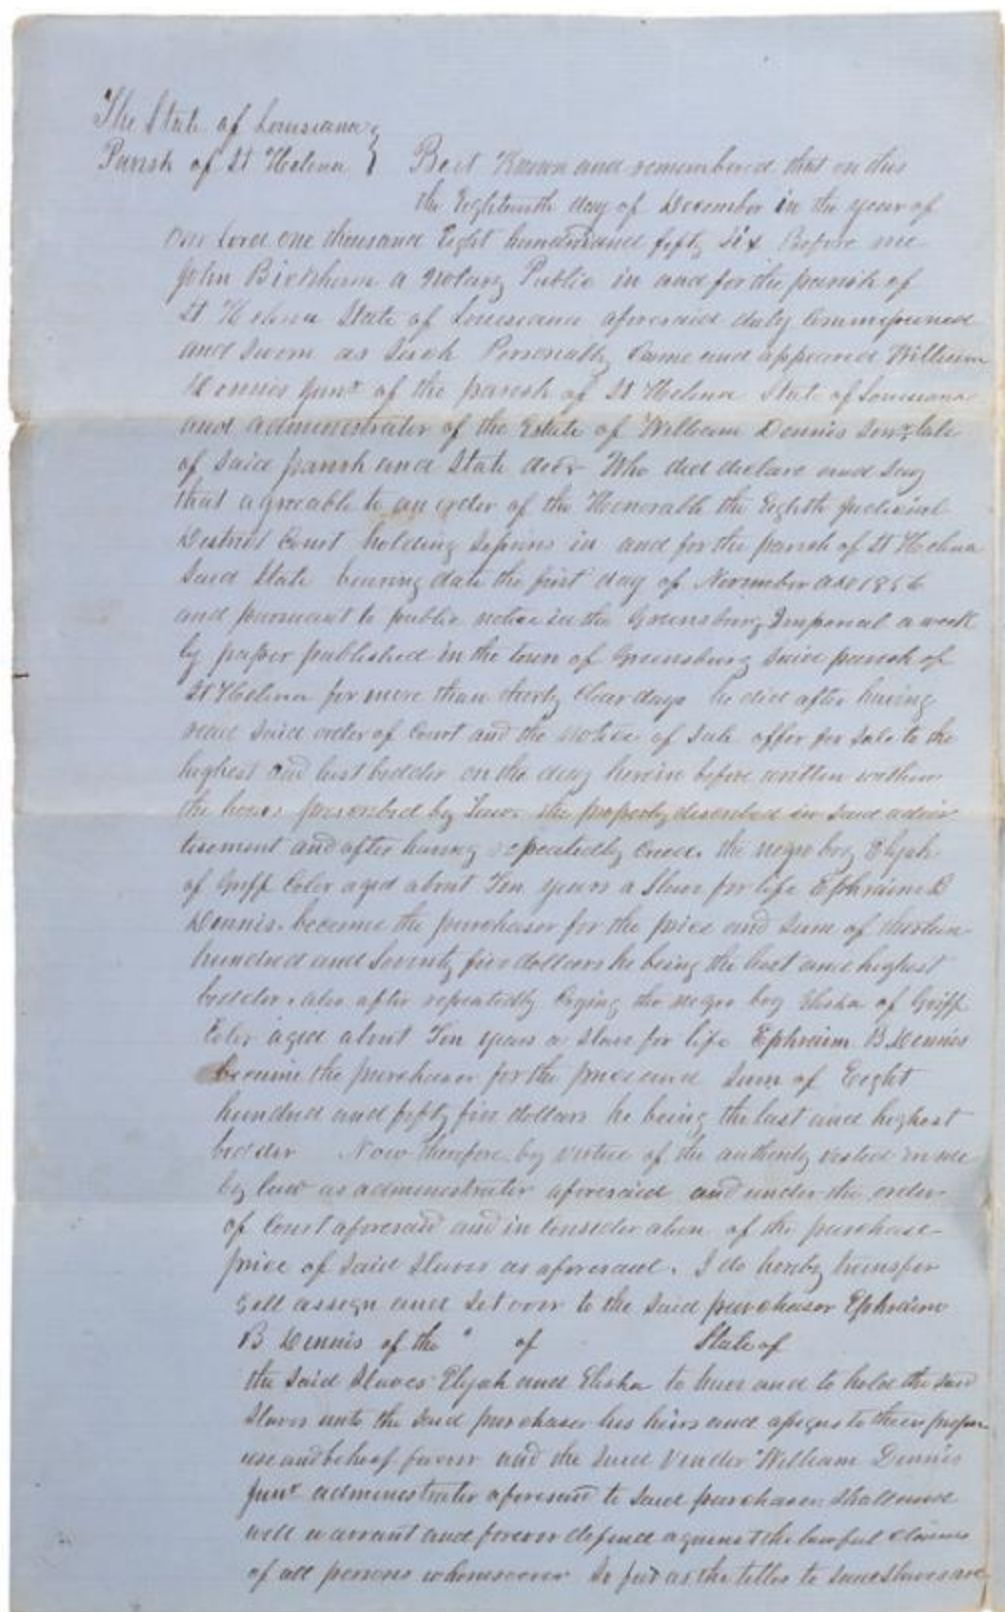 The State of Louisiana
Parish of St Helena } Be it Known and remembered that on this
the Eighteenth day of December in the year of
Our Lord one thousand Eight hundred and fifty Six Before me
John a Notary Public in and for the parish of
St Helena State of Louisiana aforesaid duly Commissioned
and Sworn as Such Personally Came and appeared William
Dennis Junr of the parish of St Helena State of Louisiana
and administrator of the Estate of William Dennis Senr late
of Said parish and State decd Who did declare and Say
that agreable to an order of the Honorable the Eighth Judicial
District Court holding Sessions in and for the parish of St Helena
Said State bearing date the first day of November AD 1856
and pursuant to public notice in the Greensburg Imperial a week
ly paper published in the town of Greensburg Said parish of
St Helena for more than thirty Clear days he did after having
read Said order of Court and the notice of Sale offer for Sale to the
highest and last bidder on the day herein before written within
the hours prescribed by Law. the property described in Said adver
tisement and after having repeatedly Cried. the negro boy Elijah
of Griff Color aged about Ten years a Slave for life Ephraim B
Dennis. became the purchaser for the price and Sum of thirteen
hundred and Seventy five dollars he being the last and highest
bidder. also after repeatedly Crying the negro boy Elisha of Griff
Color aged about Ten years a Slave for life Ephraim B Dennis
became the purchaser for the price and Sum of Eight
hundred and fifty five dollars he being the last and highest
bidder Now therefore. by virtue of the authority vested in me
by law as administrator aforesaid and under the order
of Court aforesaid and in consideration of the purchase
price of Said Slaves as aforesaid. I do hereby transfer
Sell assign and Set over to the Said purchaser Ephraim
B Dennis of the " of State of
the Said Slaves Elijah and Elisha to have and to hold the Said
Slaves unto the Said purchaser his heirs and assigns to their proper
use and behoof forever and the Said Vender William Dennis
Junr administrator aforesaid to Said purchaser Shall and
will warrant and forever defend against the lawful claims
of all persons whomsoever So far as the titles to Said Slaves are